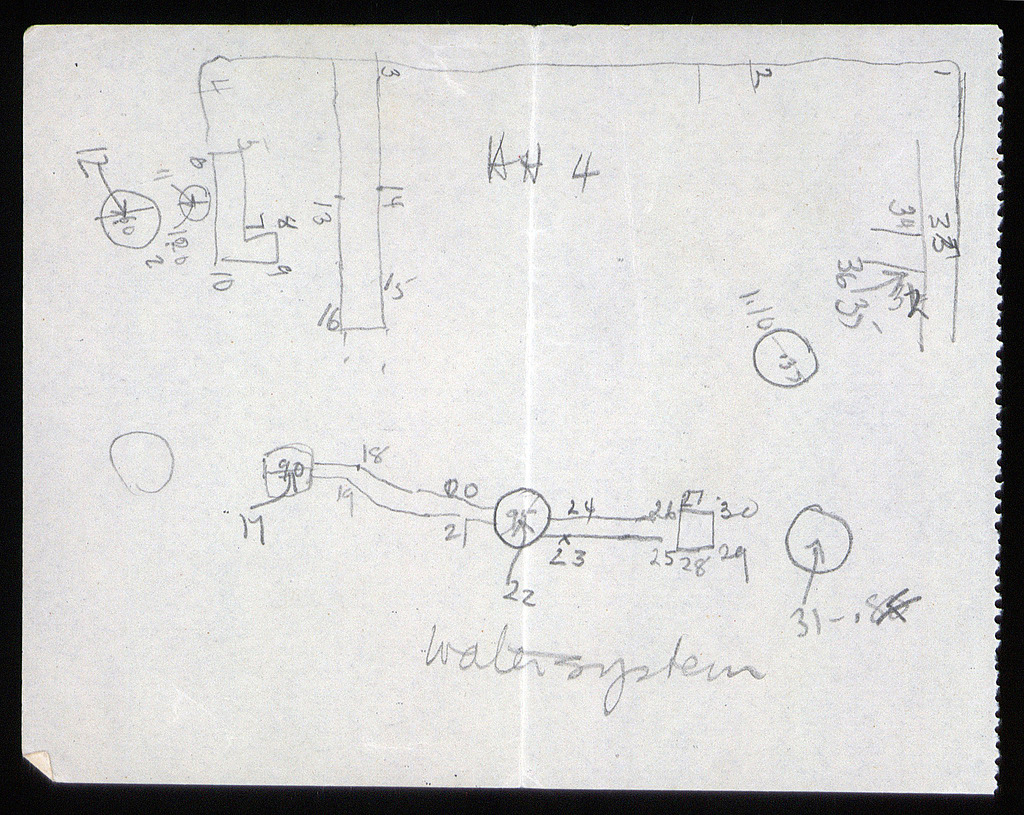 4 3 2 1
5
6
12 11
## 4
14
13
34 33
7 8
10 9
100
2
15
16
36 35
1.10
37
90
18
17
19
20
21
95
22
24
23
26 27 30
25 28 29
31-.8
Water system